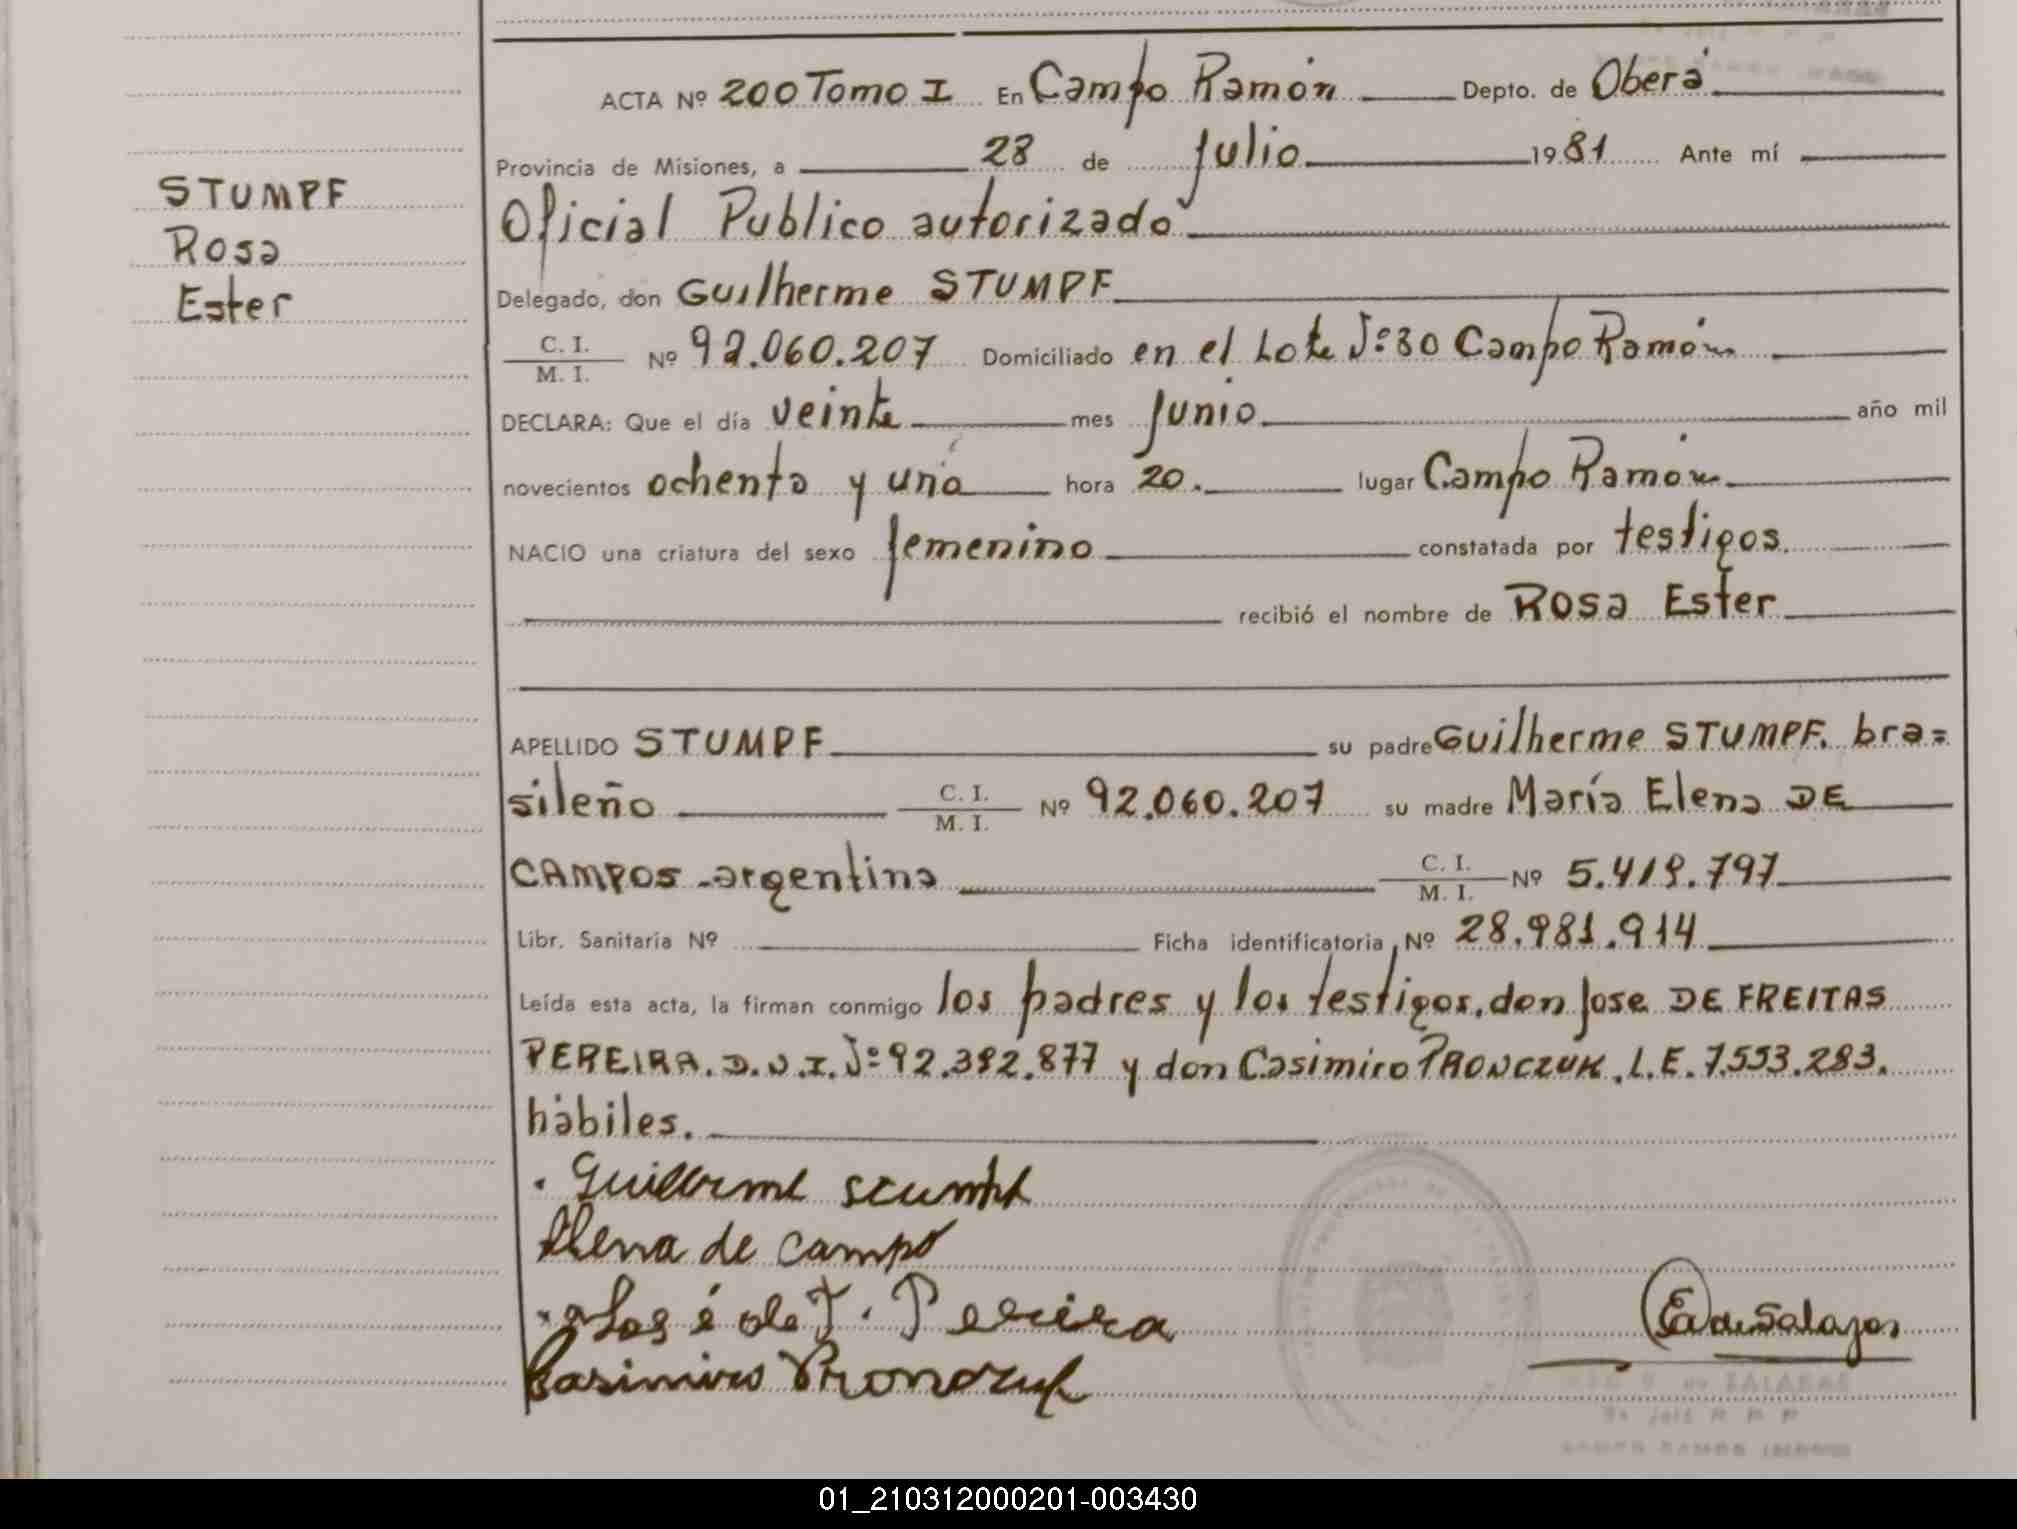 STUMPF
Rosa
Ester
ACTA Nº 200 Tomo I En Campo Ramón Depto. de Oberá
Provincia de Misiones, a 28 de Julio 1981 Ante mí
Oficial Publico autorizado
Delegado, don Guilherme STUMPF
C. I. / M. I. Nº 92.060.207 Domiciliado en el Lote Nº 80 Campo Ramón
DECLARA: Que el día veinte mes Junio año mil
novecientos ochenta y uno hora 20. lugar Campo Ramón
NACIO una criatura del sexo femenino constatada por testigos.
recibió el nombre de Rosa Ester
APELLIDO STUMPF su padre Guilherme STUMPF. bra=
sileño C. I. / M. I. Nº 92.060.207 su madre María Elena DE
CAMPOS - argentina C. I. / M. I. Nº 5.419.797
Libr. Sanitaria Nº Ficha identificatoria Nº 28.981.914
Leída esta acta, la firman conmigo los padres y los testigos, don Jose DE FREITAS
PEREIRA. D.N.I. Nº 92.392.877 y don Casimiro PRONCZUK. L.E. 7.553.283.
hábiles.
Guillerme
Elena de campo
José de F. Pereira
Casimiro Pronczuk
de Salazar
01_210312000201-003430